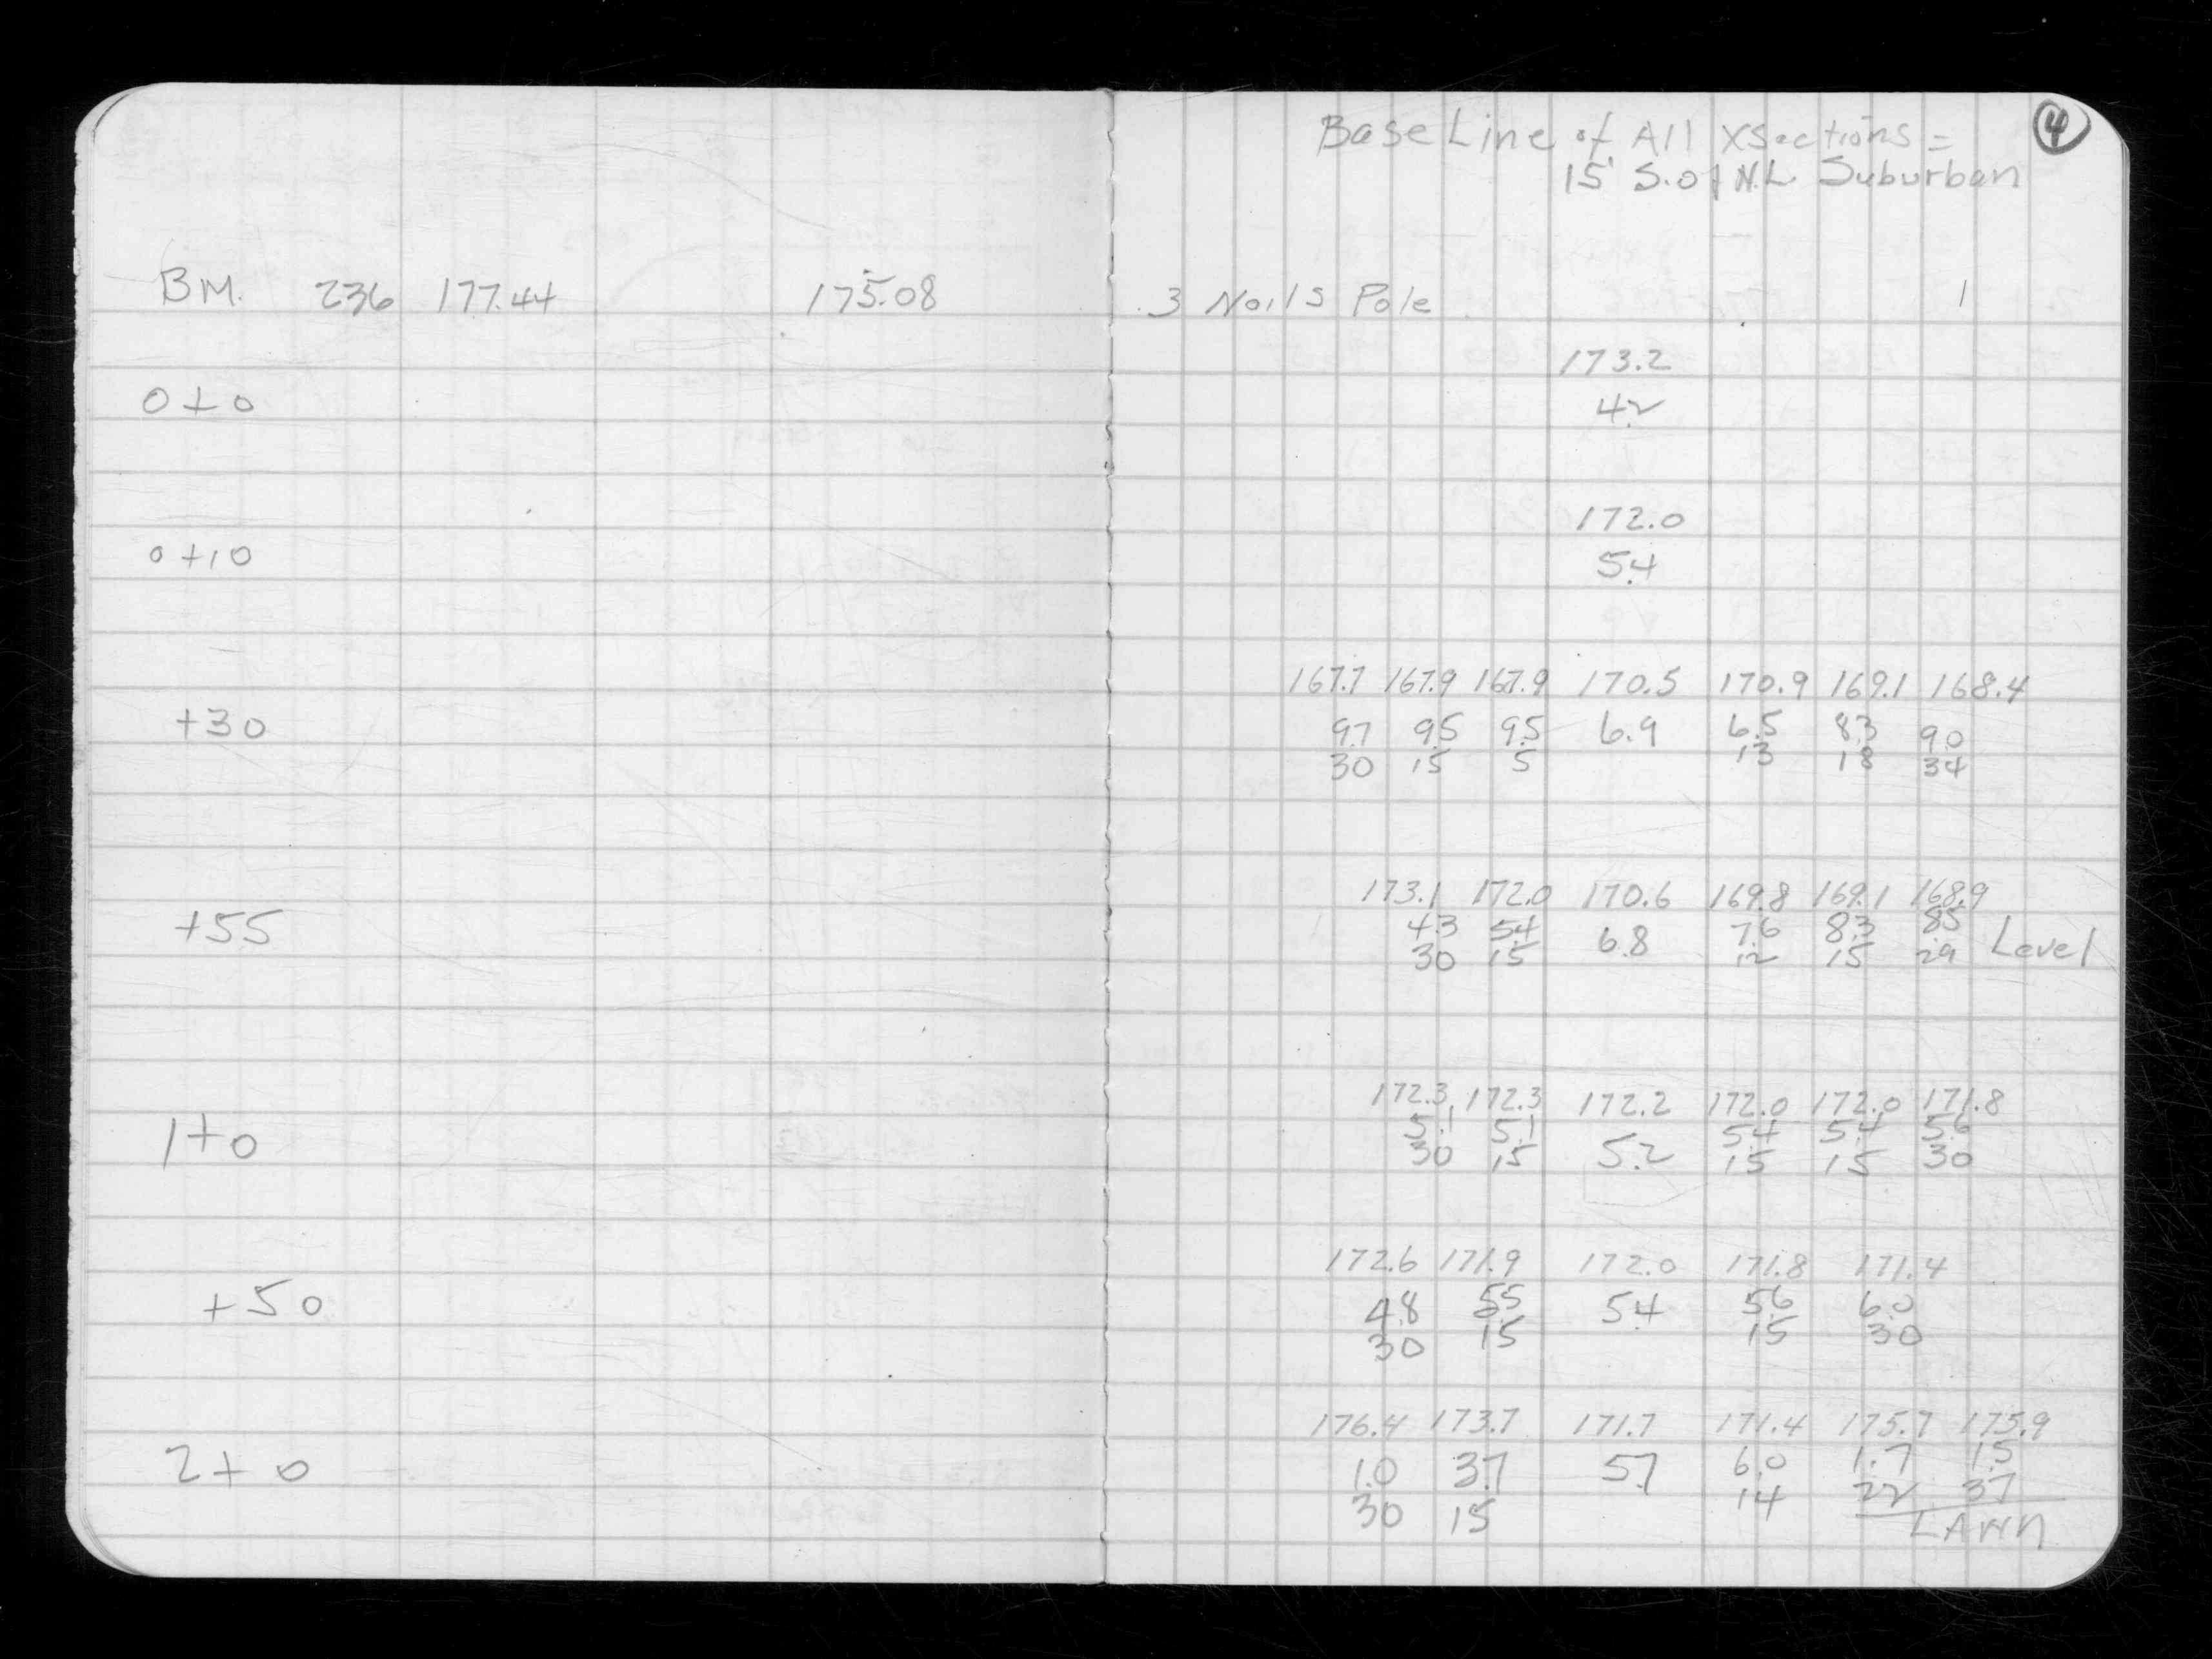 ④
Base Line of All Xsections =
15' S. of N.L. Suburban
BM. 2.36 177.44 175.08 3 Nails Pole 1
173.2
0+0 4.2
172.0
0+10 5.4
167.7 167.9 167.9 170.5 170.9 169.1 168.4
+30 9.7 9.5 9.5 6.9 6.5 8.3 9.0
30 15 5 13 18 34
173.1 172.0 170.6 169.8 169.1 168.9
+55 4.3 5.4 6.8 7.6 8.3 8.5 Level
30 15 12 15 29
172.3 172.3 172.2 172.0 172.0 171.8
1+0 5.1 5.1 5.2 5.4 5.4 5.6
30 15 15 15 30
172.6 171.9 172.0 171.8 171.4
+50 4.8 5.5 5.4 5.6 6.0
30 15 15 30
176.4 173.7 171.7 171.4 175.7 175.9
2+0 1.0 3.7 5.7 6.0 1.7 1.5
30 15 14 22 37
LAWN